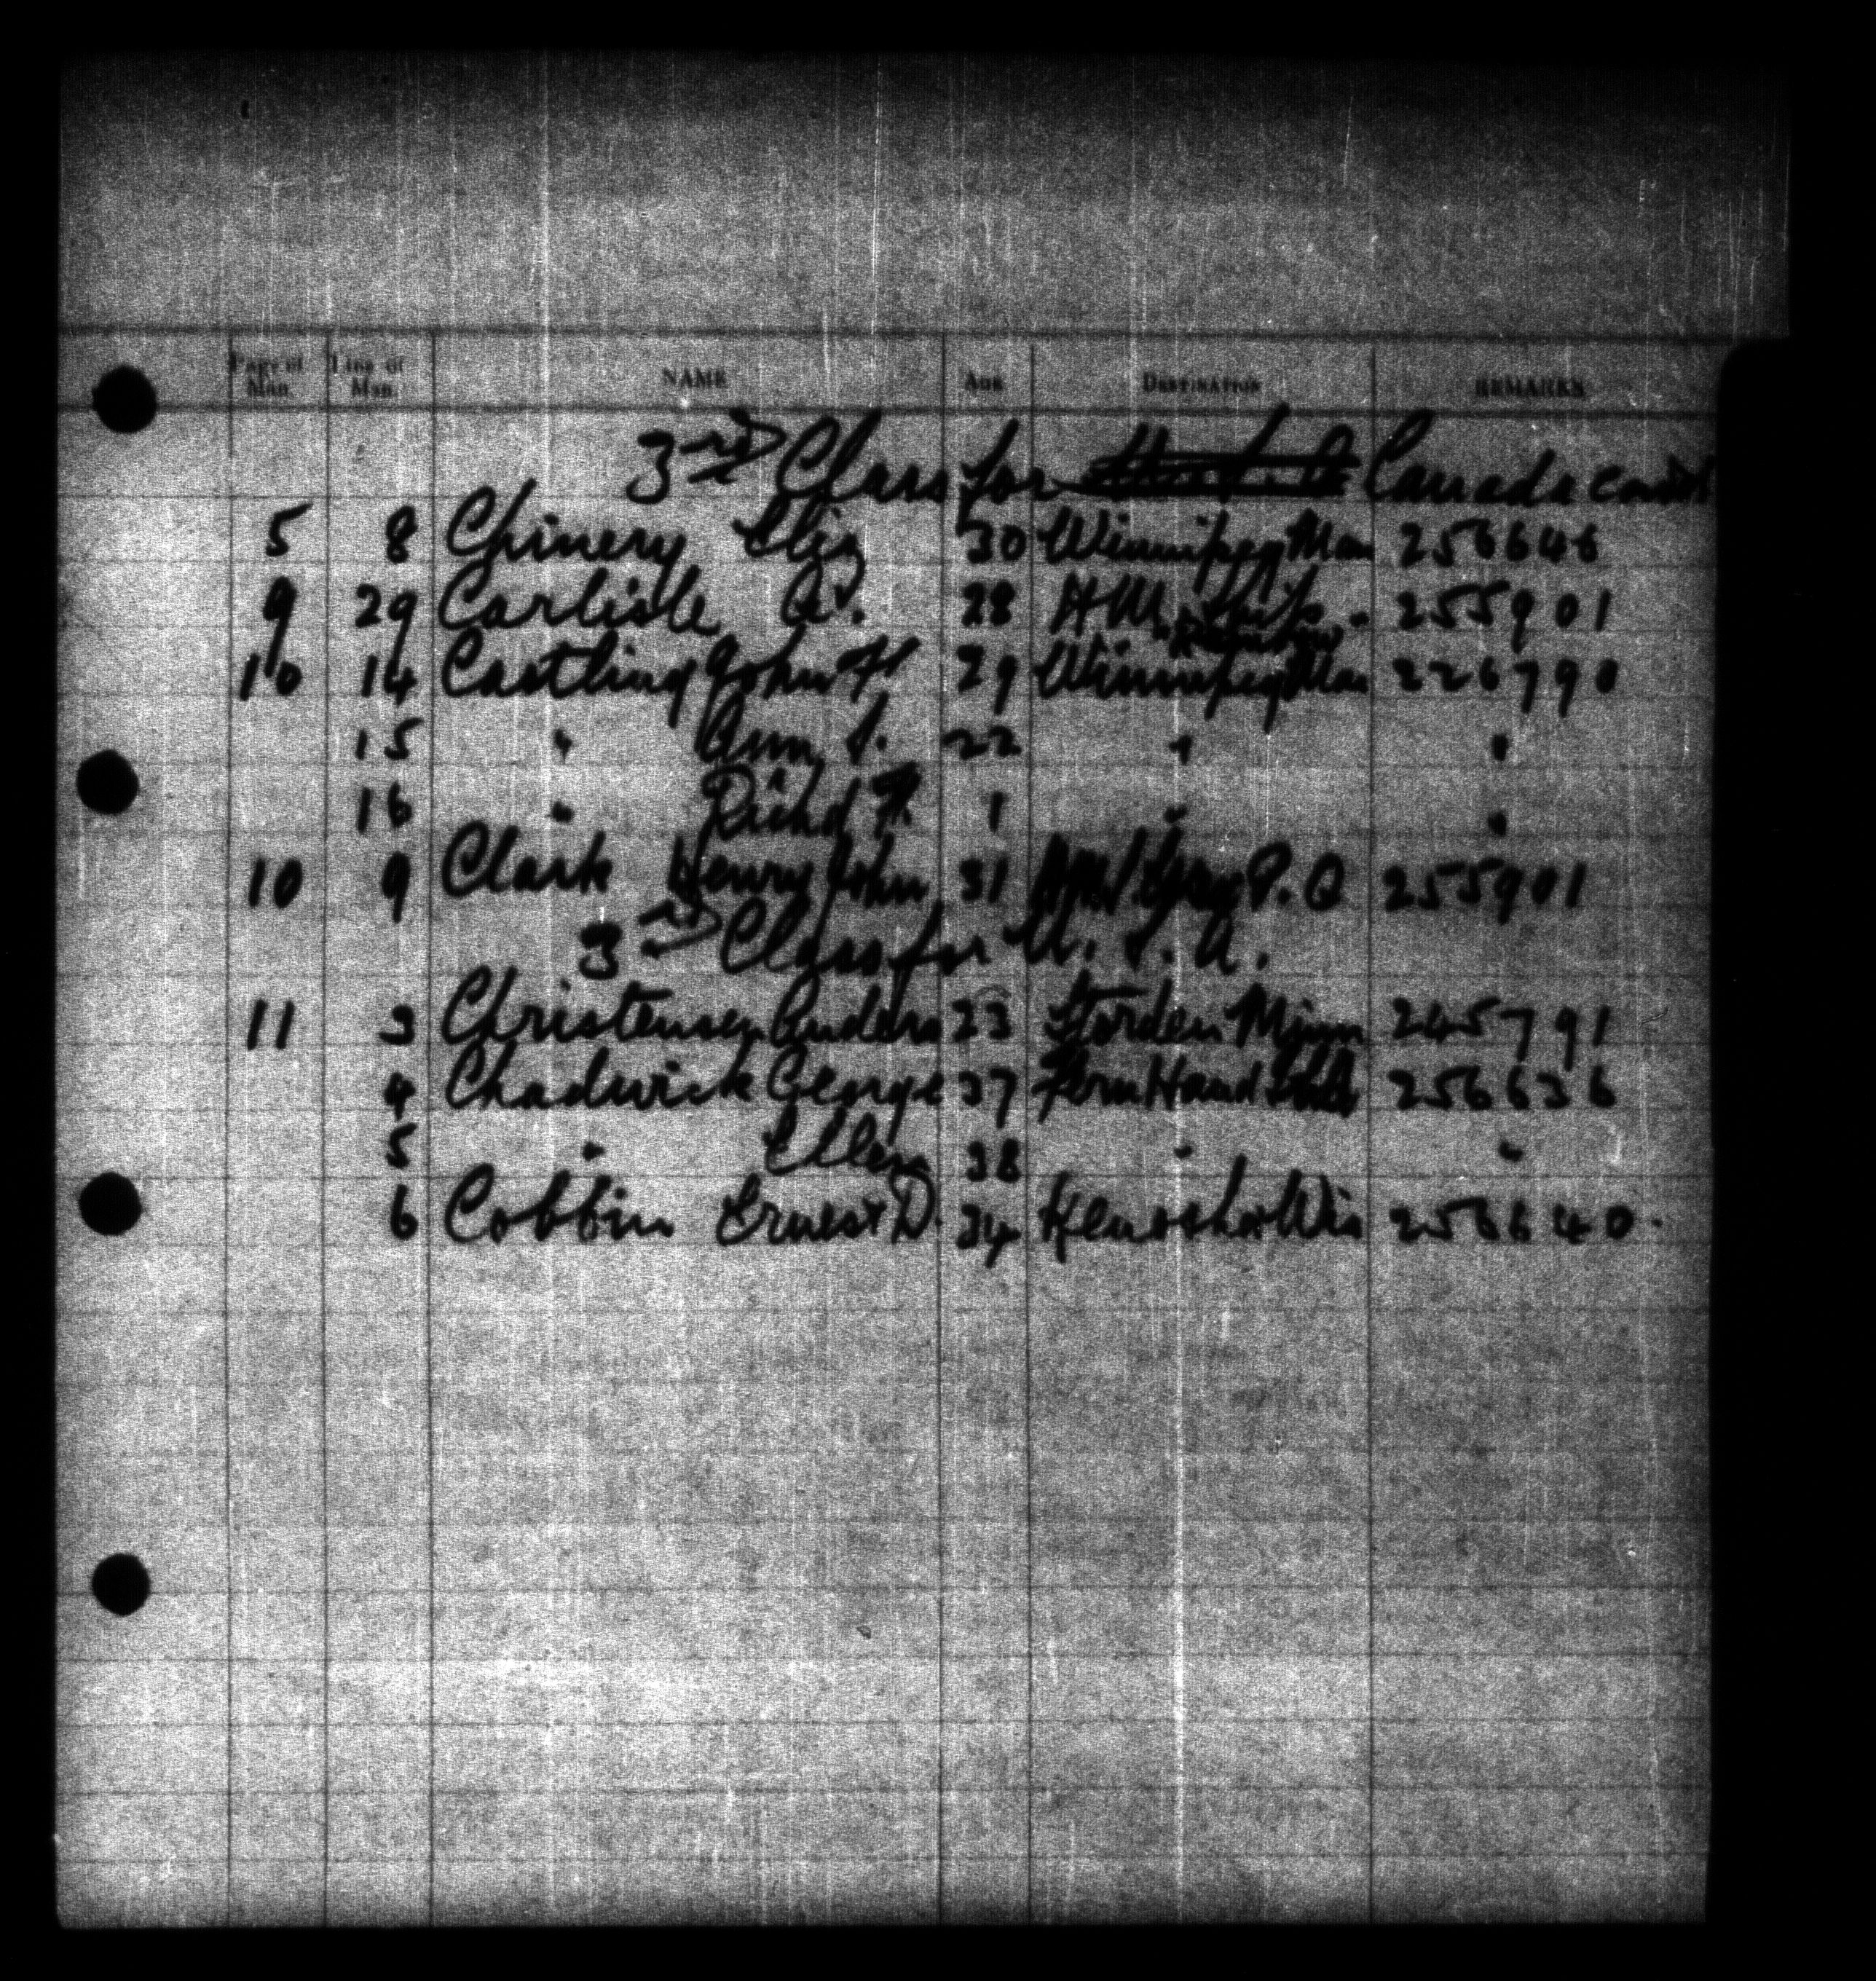 Page of Man. Line of Man. NAME AGE DESTINATION REMARKS
3rd Class for Canada cont
5 8 Chinery Eliz 30 Winnipeg Man 256646
9 29 Carlisle A. 28 H.M. Ship. 255901
"Rainbow"
10 14 Castling John H 29 Winnipeg Man 226790
15 " Ann S. 22 " "
16 " Richd F. 1 " "
10 9 Clark Henry John 31 P.Q 255901
3rd Class for U.S.A.
11 3 Christensen Anders 23 Storden Minn 245791
4 Chadwick George 37 256636
5 " Ellen 38 " "
6 Cobbin Ernest D. 34 Kenosha Wis 256640.